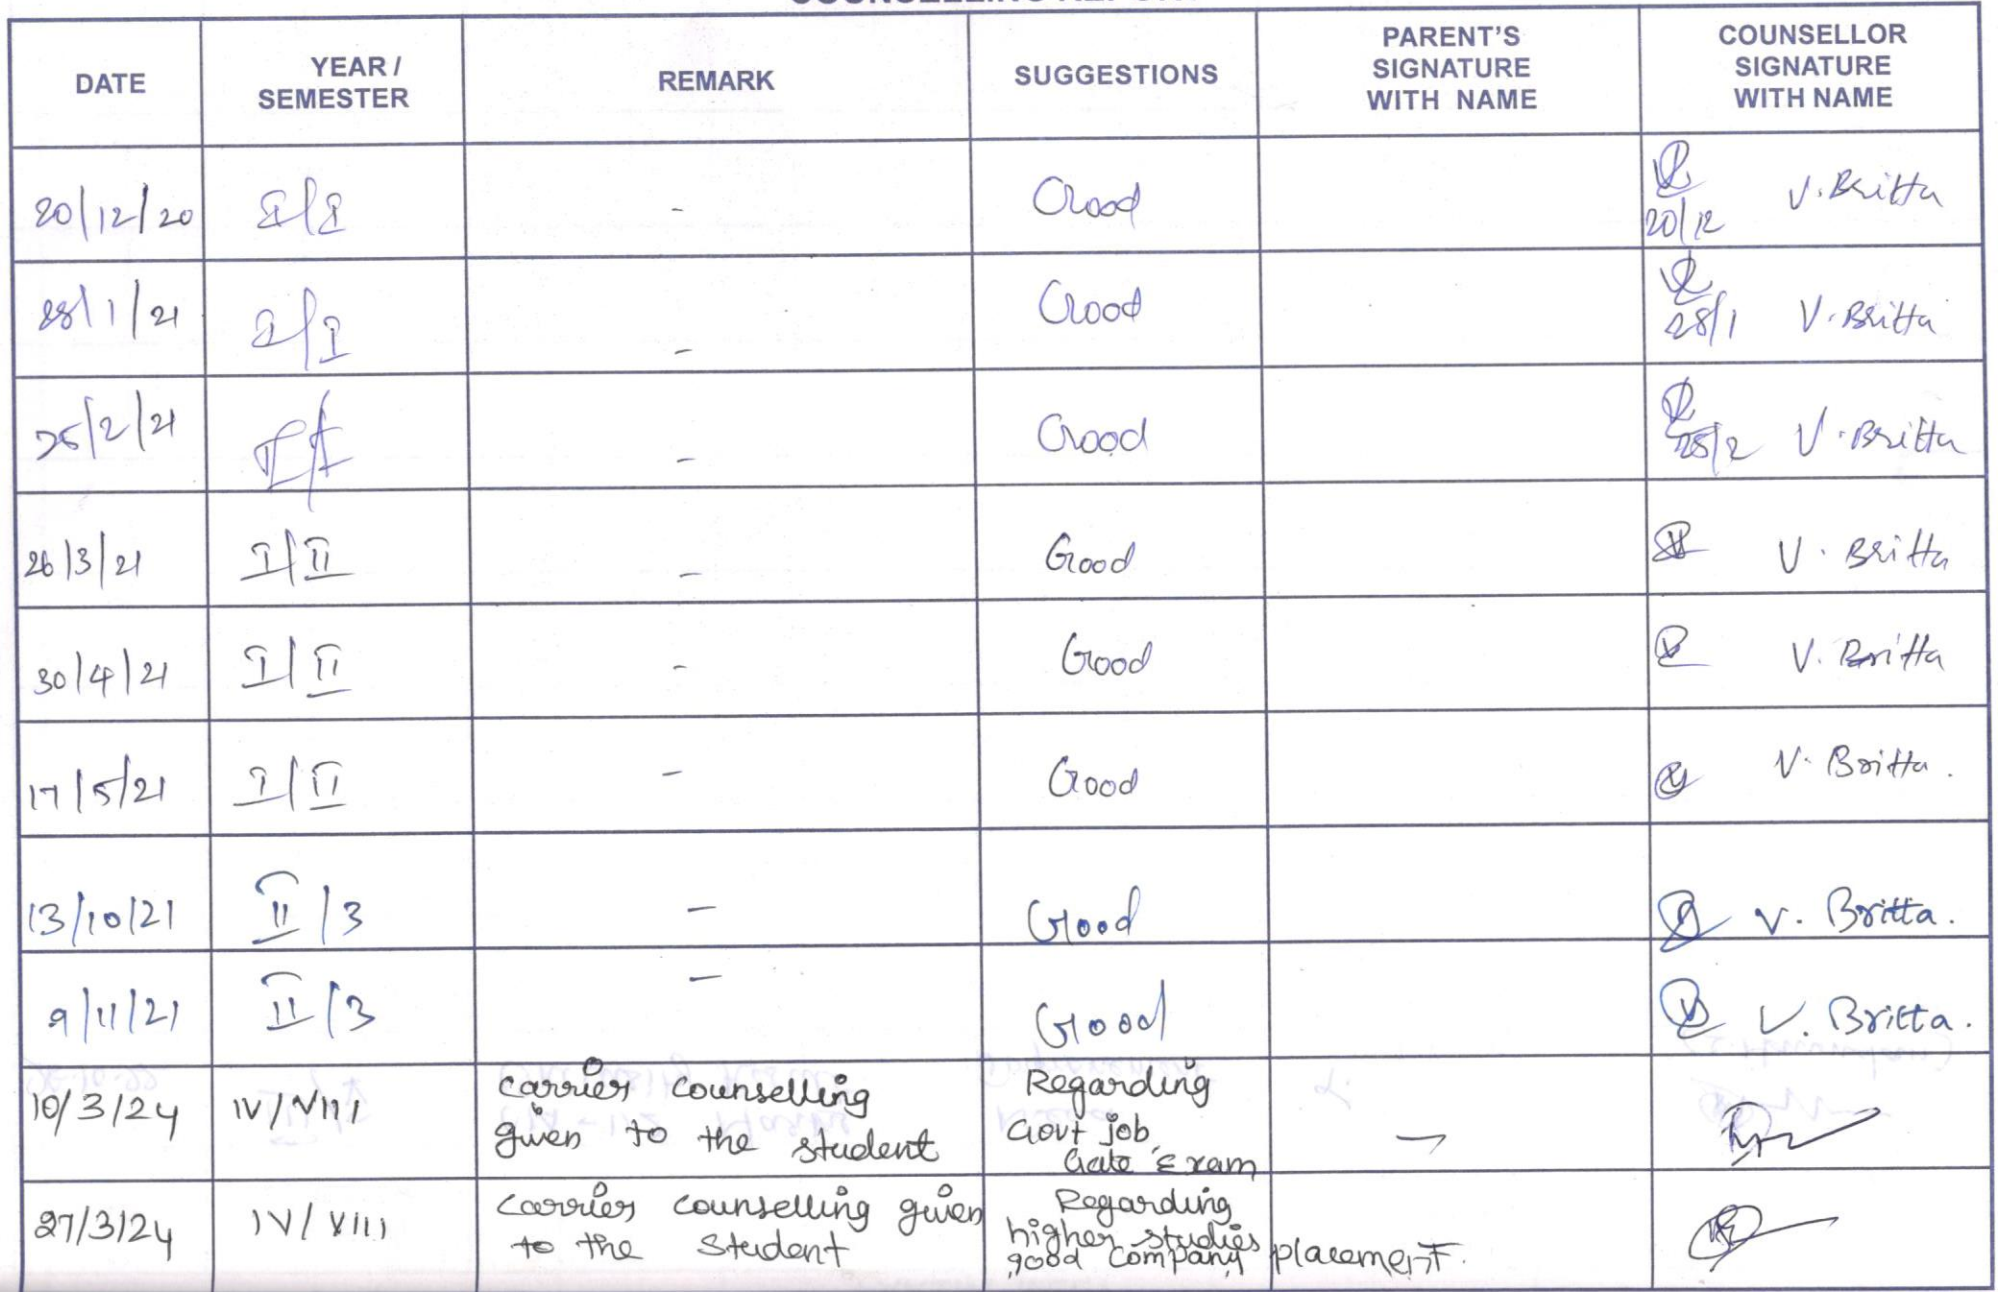 DATE
YEAR /
SEMESTER
REMARK
SUGGESTIONS
PARENT'S
SIGNATURE
WITH NAME
COUNSELLOR
SIGNATURE
WITH NAME
20/12/20 I/I - Good 20/12 V. Britta
28/1/21 I/I - Good 28/1 V. Britta
25/2/21 - Good 25/2 V. Britta
26/3/21 I/II - Good V. Britta
30/4/21 I/II - Good V. Britta
17/5/21 I/II - Good V. Britta.
13/10/21 II/3 - Good V. Britta.
9/11/21 II/3 - Good V. Britta.
10/3/24 IV/VIII
carrier counselling
given to the student
Regarding
Govt job,
Gate Exam
—
27/3/24 IV/VIII
carrier counselling given
to the student
Regarding
higher studies
good company placement.